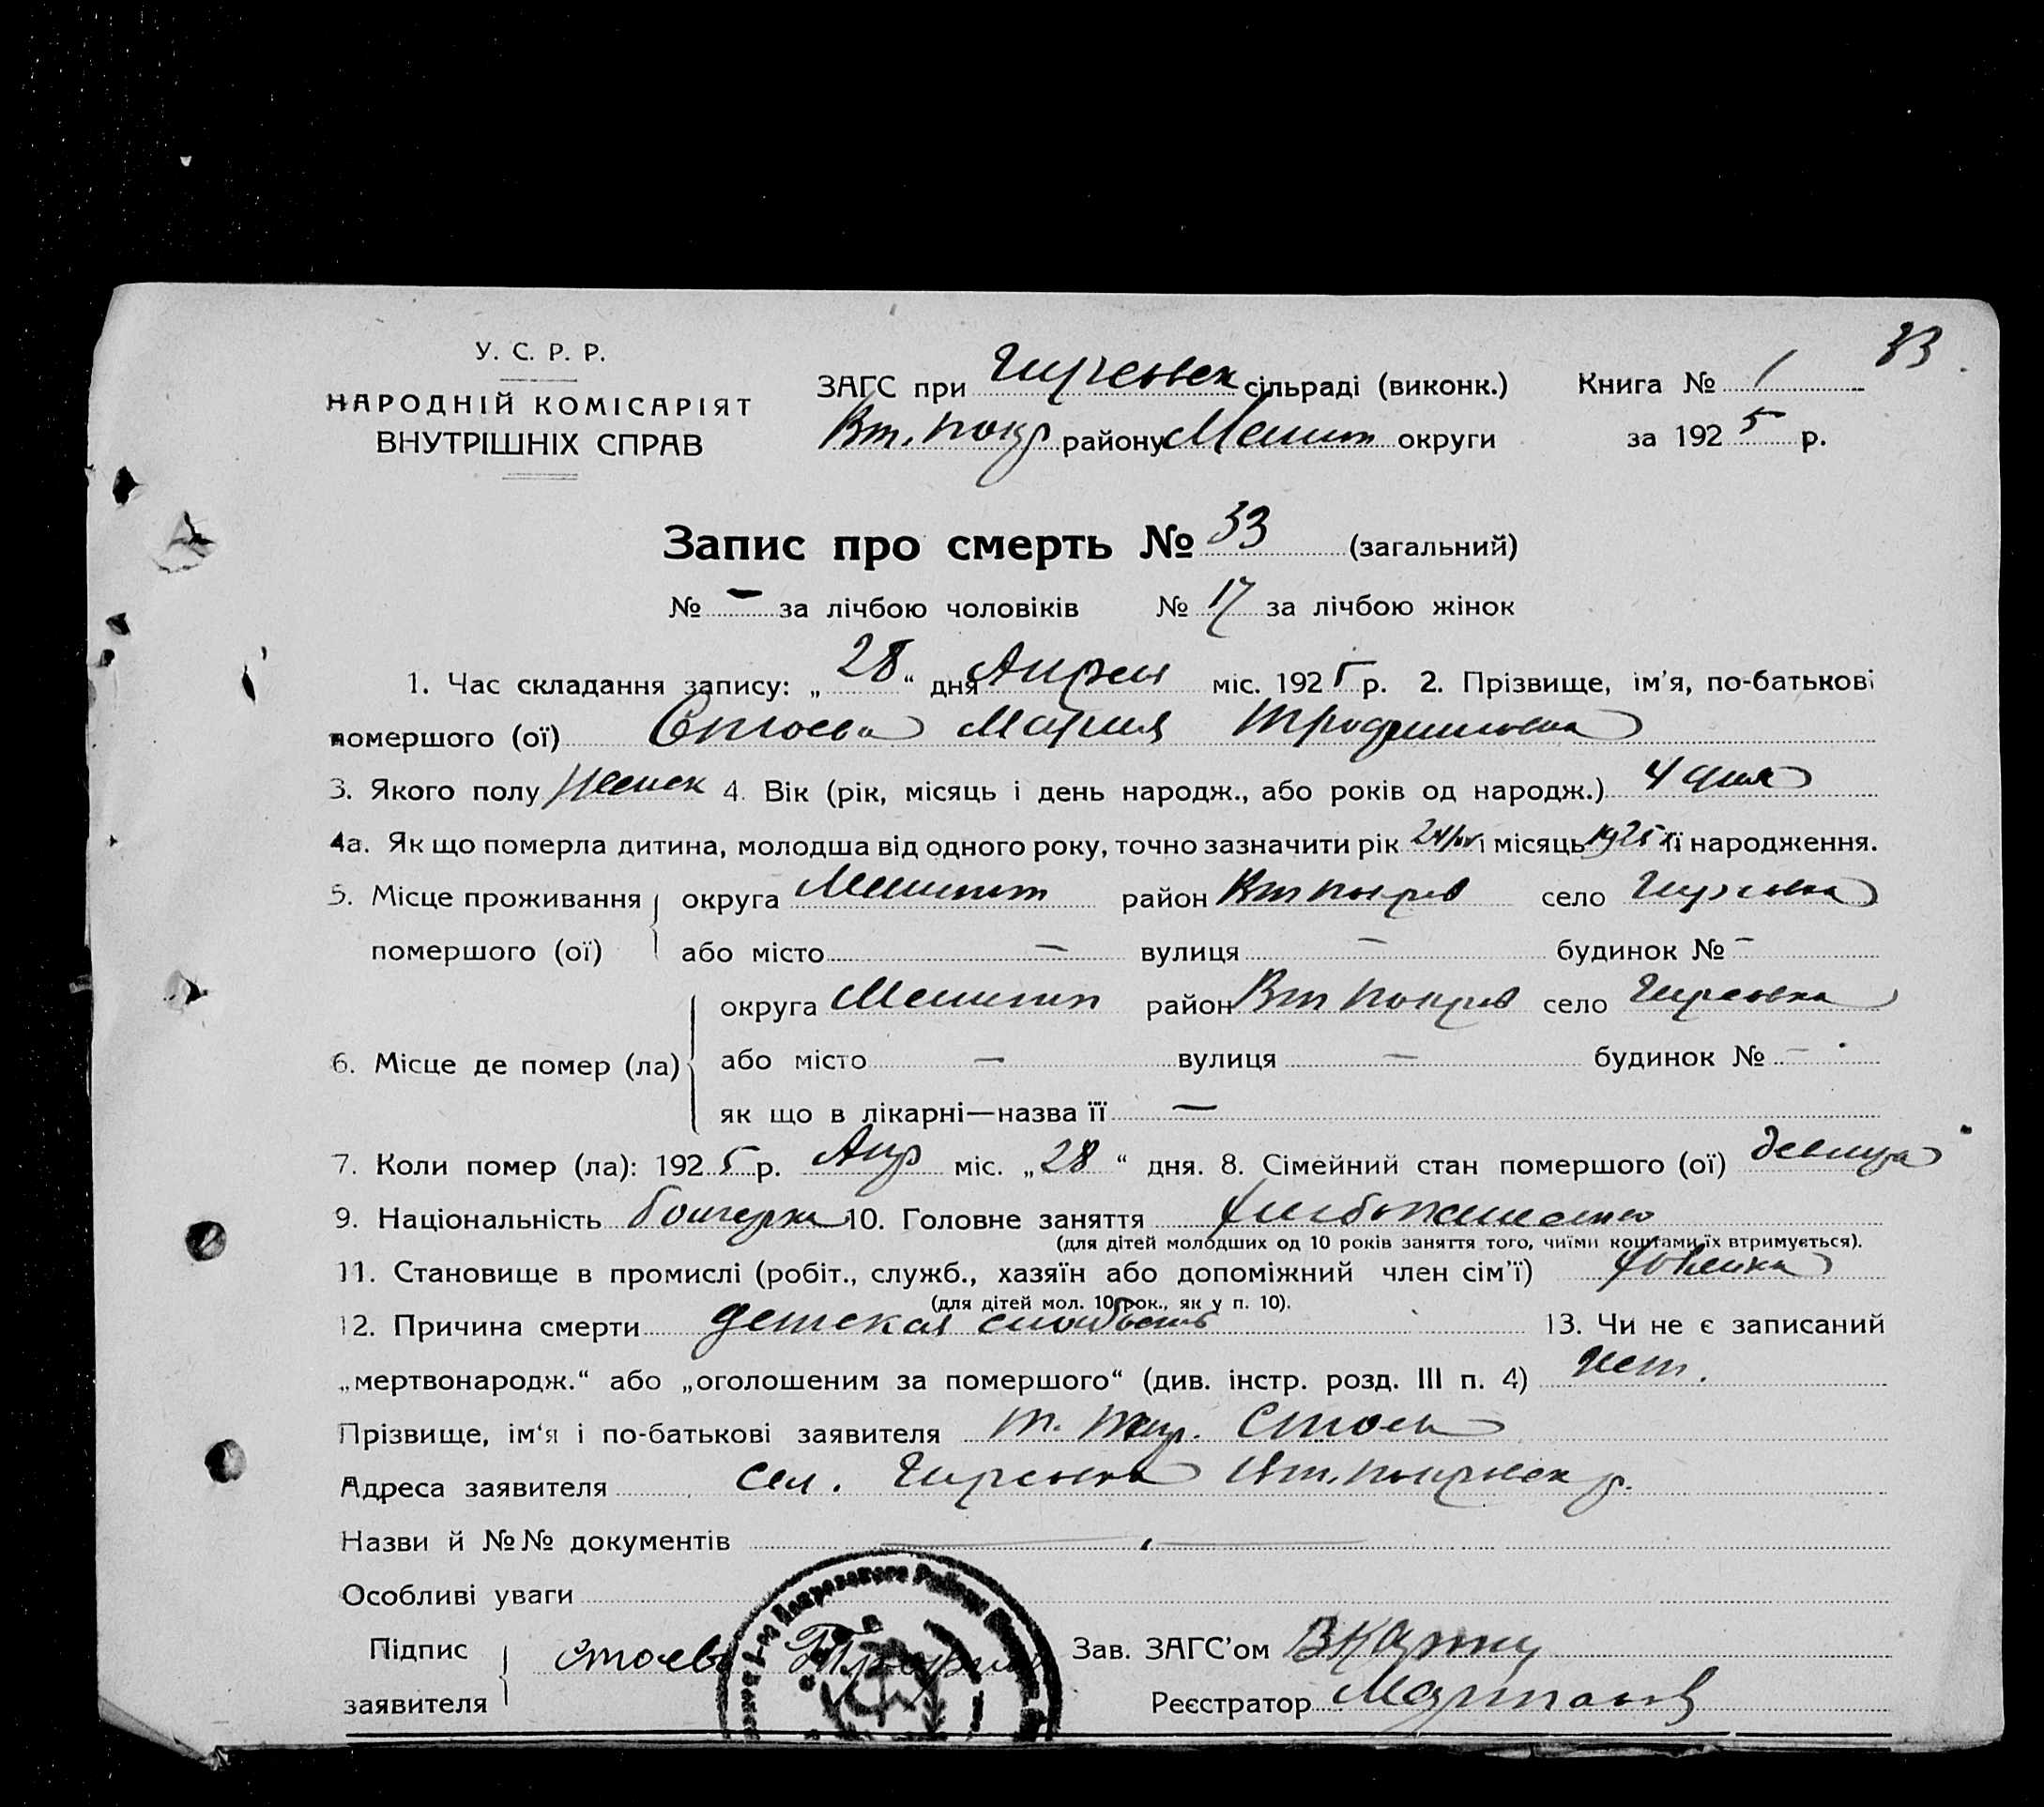 33
У. С. Р. Р.
НАРОДНІЙ КОМІСАРІЯТ
ВНУТРІШНІХ СПРАВ
ЗАГС при Гирсовск сільраді (виконк.) Книга № 1
Вт. Покр району Мелит округи за 1925 р.
Запис про смерть № 33 (загальний)
№ — за лічбою чоловіків № 17 за лічбою жінок
1. Час складання запису: „28“ дня Апреля міс. 1925 р. 2. Прізвище, ім'я, по-батькові
помершого (ої) Стоева Мария Трофимовна
3. Якого полу женск 4. Вік (рік, місяць і день народж., або років од народж.) 4 дня
4а. Як що померла дитина, молодша від одного року, точно зазначити рік 24/IV і місяць 1925 її народження.
5. Місце проживання помершого (ої) округа Мелитоп район Вт Покров село Гирсовка
або місто — вулиця — будинок № —
6. Місце де помер (ла) округа Мелитоп район Вт Покров село Гирсовка
або місто — вулиця — будинок № —
як що в лікарні—назва її —
7. Коли помер (ла): 1925 р. Апр міс. „28“ дня. 8. Сімейний стан помершого (ої) девица
9. Національність болгарка 10. Головне заняття хлебопашество
(для дітей молодших од 10 років заняття того, чиїми коштами їх втримується).
11. Становище в промислі (робіт., служб., хазяїн або допоміжний член сім'ї)
(для дітей мол. 10 рок., як у п. 10).
12. Причина смерти детская слабость 13. Чи не є записаний
„мертвонародж.“ або „оголошеним за помершого“ (див. інстр. розд. III п. 4) нет.
Прізвище, ім'я і по-батькові заявителя Т. Стоев
Адреса заявителя сел. Гирсовка Вт. Покровск р.
Назви й №№ документів —
Особливі уваги
Підпис заявителя Стоев Трофим Зав. ЗАГС'ом
Реєстратор